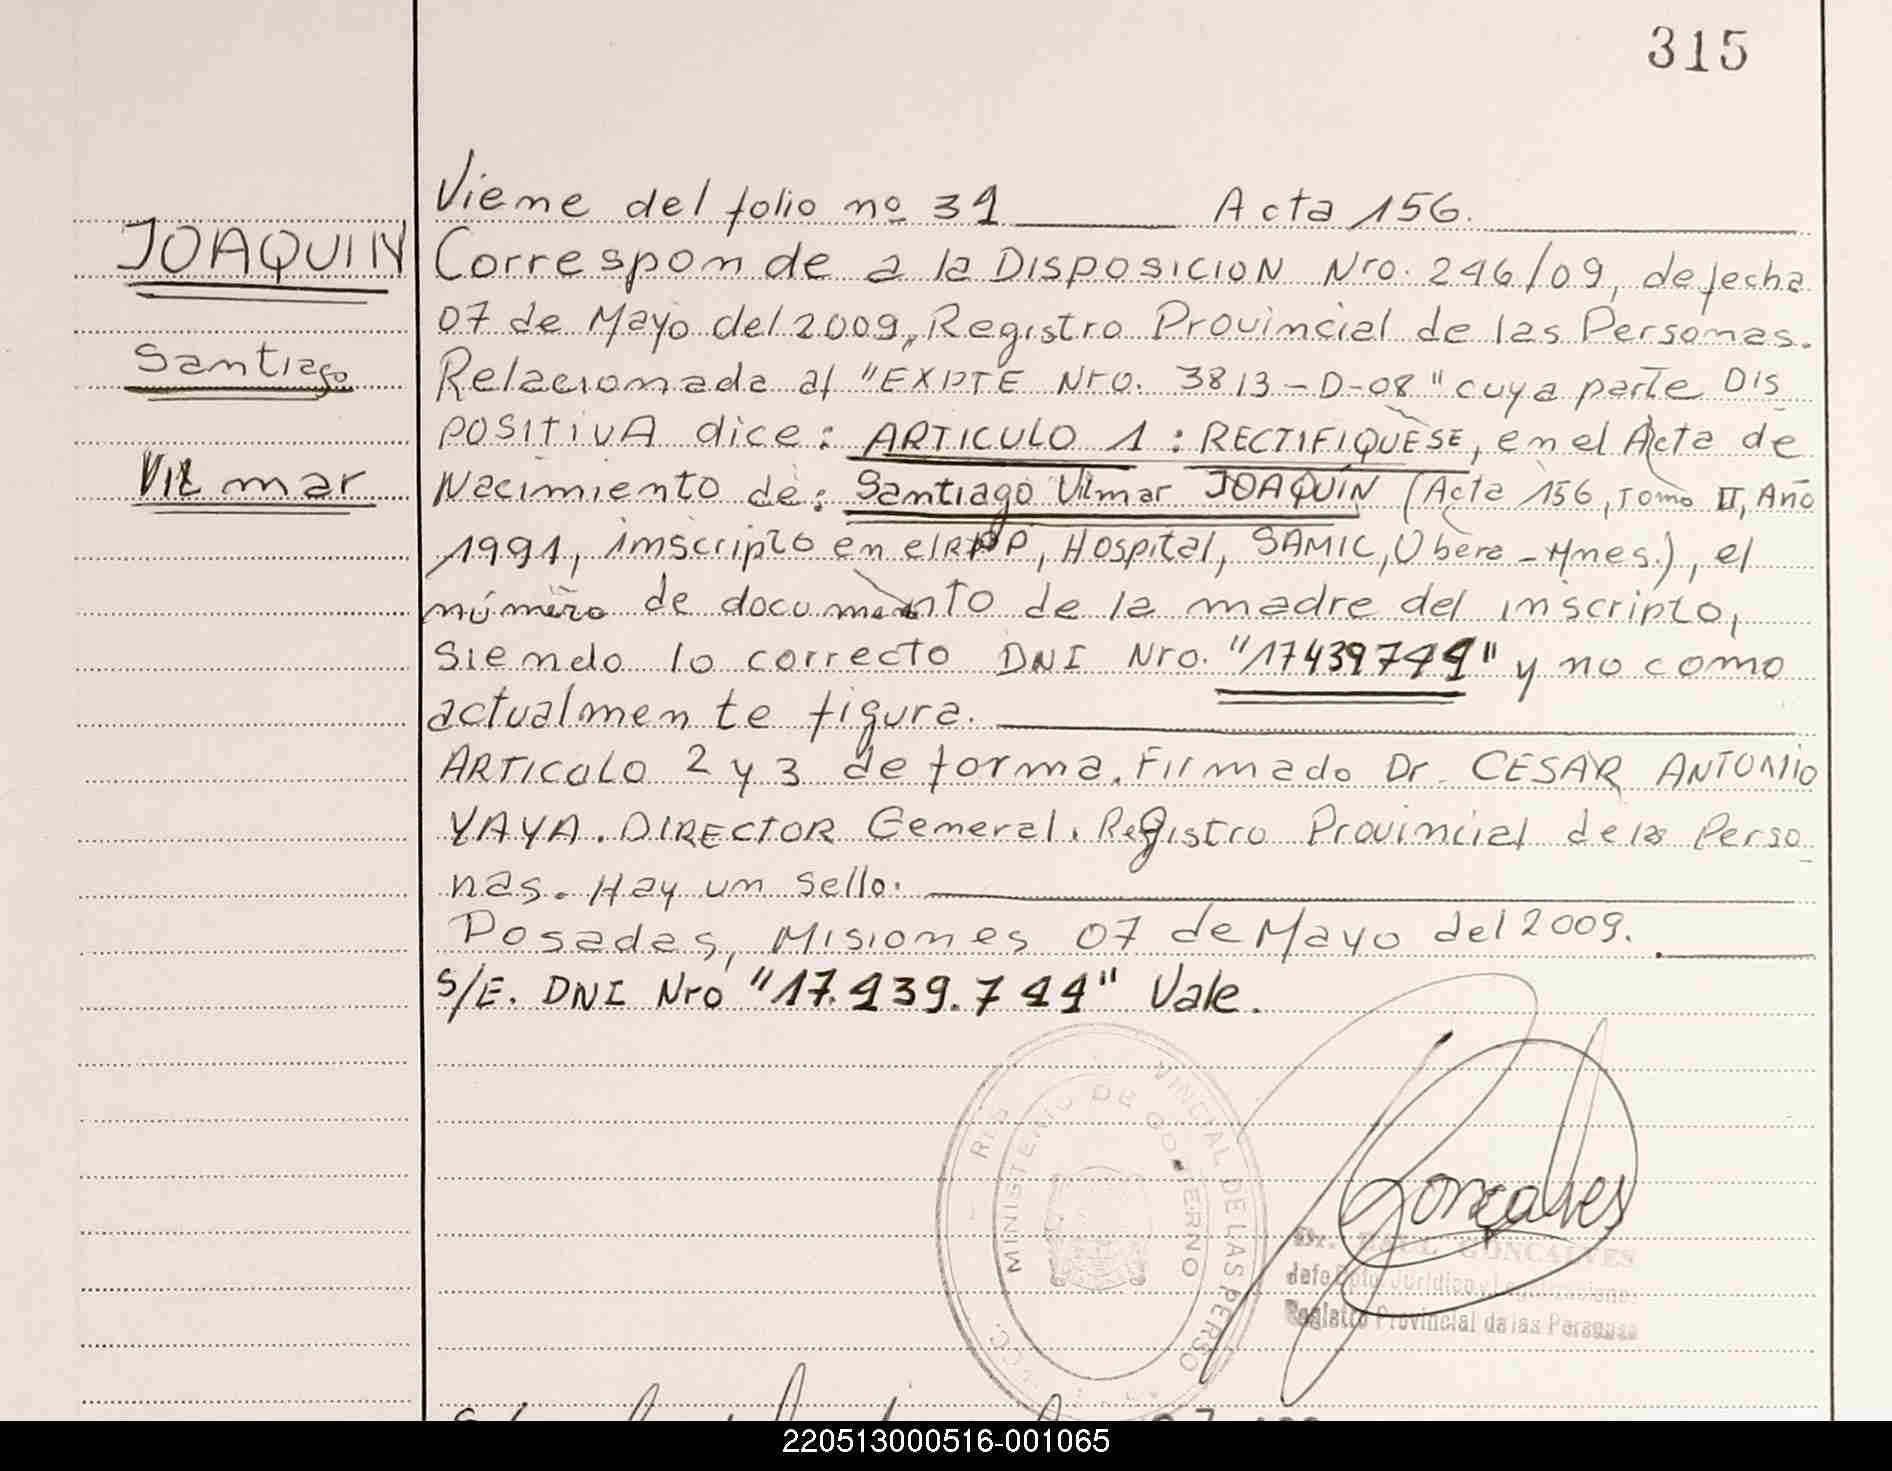 315
Viene del folio nº 31 Acta 156.
JOAQUIN
Corresponde a la DISPOSICION Nro. 246/09, de fecha
07 de Mayo del 2009, Registro Provincial de las Personas.
Santiago
Relacionada al "EXPTE Nro. 3813-D-08" cuya parte DIS
POSITIVA dice: ARTICULO 1: RECTIFIQUESE, en el Acta de
Vilmar
Nacimiento de: Santiago Vilmar JOAQUÍN (Acta 156, Tomo II, Año
1991, inscripto en el RPP, Hospital, SAMIC, Obera - Mnes.), el
número de documento de la madre del inscripto,
siendo lo correcto DNI Nro. "17439744" y no como
actualmente figura.
ARTICULO 2 y 3 de forma. Firmado Dr. CESAR ANTONIO
YAYA. DIRECTOR General. Registro Provincial de las Perso_
nas. Hay un sello.
Posadas, Misiones 07 de Mayo del 2009.
S/E. DNI Nro "17.439.744" Vale.
MINISTERIO DE GOBIERNO
VINCIAL DE LAS PERSO
Gonçalves
Dr. GONCALVES
Jefe Dpto. Jurídico
Registro Provincial de las Personas
220513000516-001065